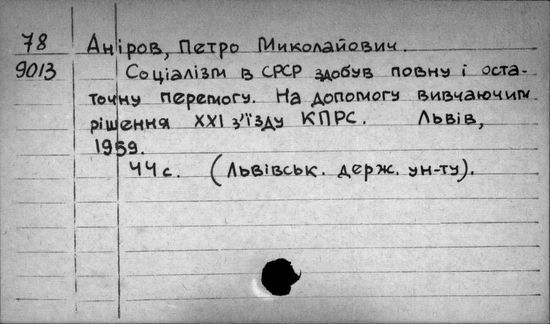 78 Аніров, Петро Миколайович.
9013 Соціалізм в СРСР здобув повну і оста-
точну перемогу. На допомогу вивчаючим
рішення XXI з'їзду КПРС. Львів,
1959.
44 с. (Львівськ. держ. ун-ту).